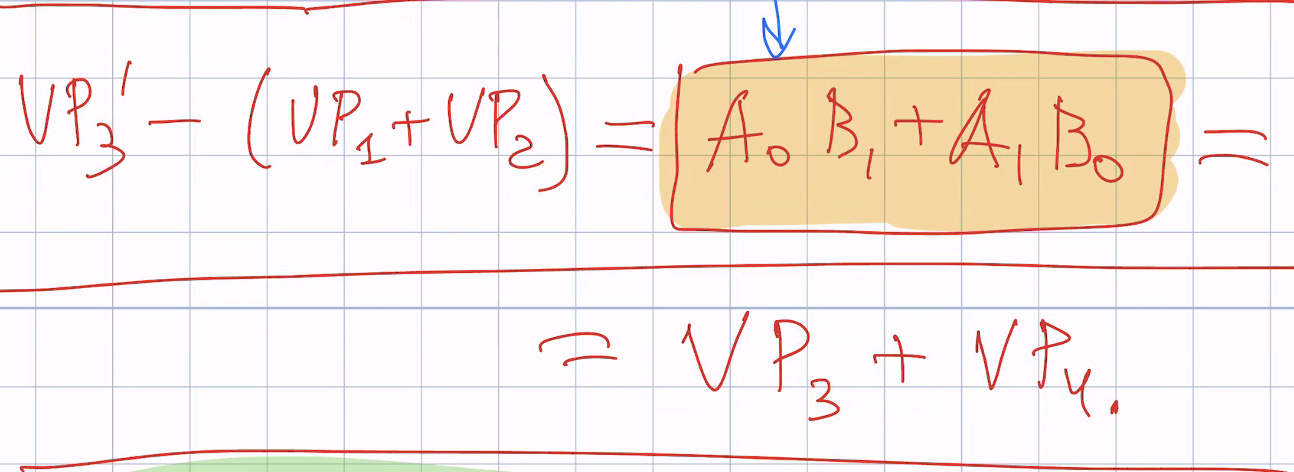 VP₃' − (VP₁ + VP₂) = A₀ B₁ + A₁ B₀ =
= VP₃ + VP₄.